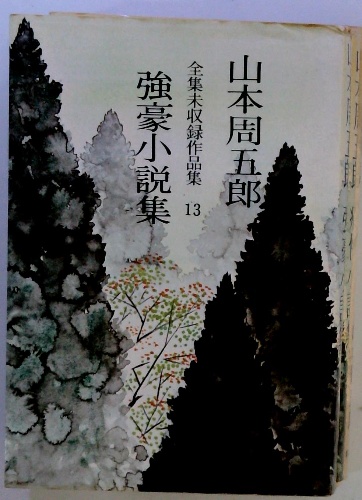 山本周五郎
全集未収録作品集 13
強豪小説集